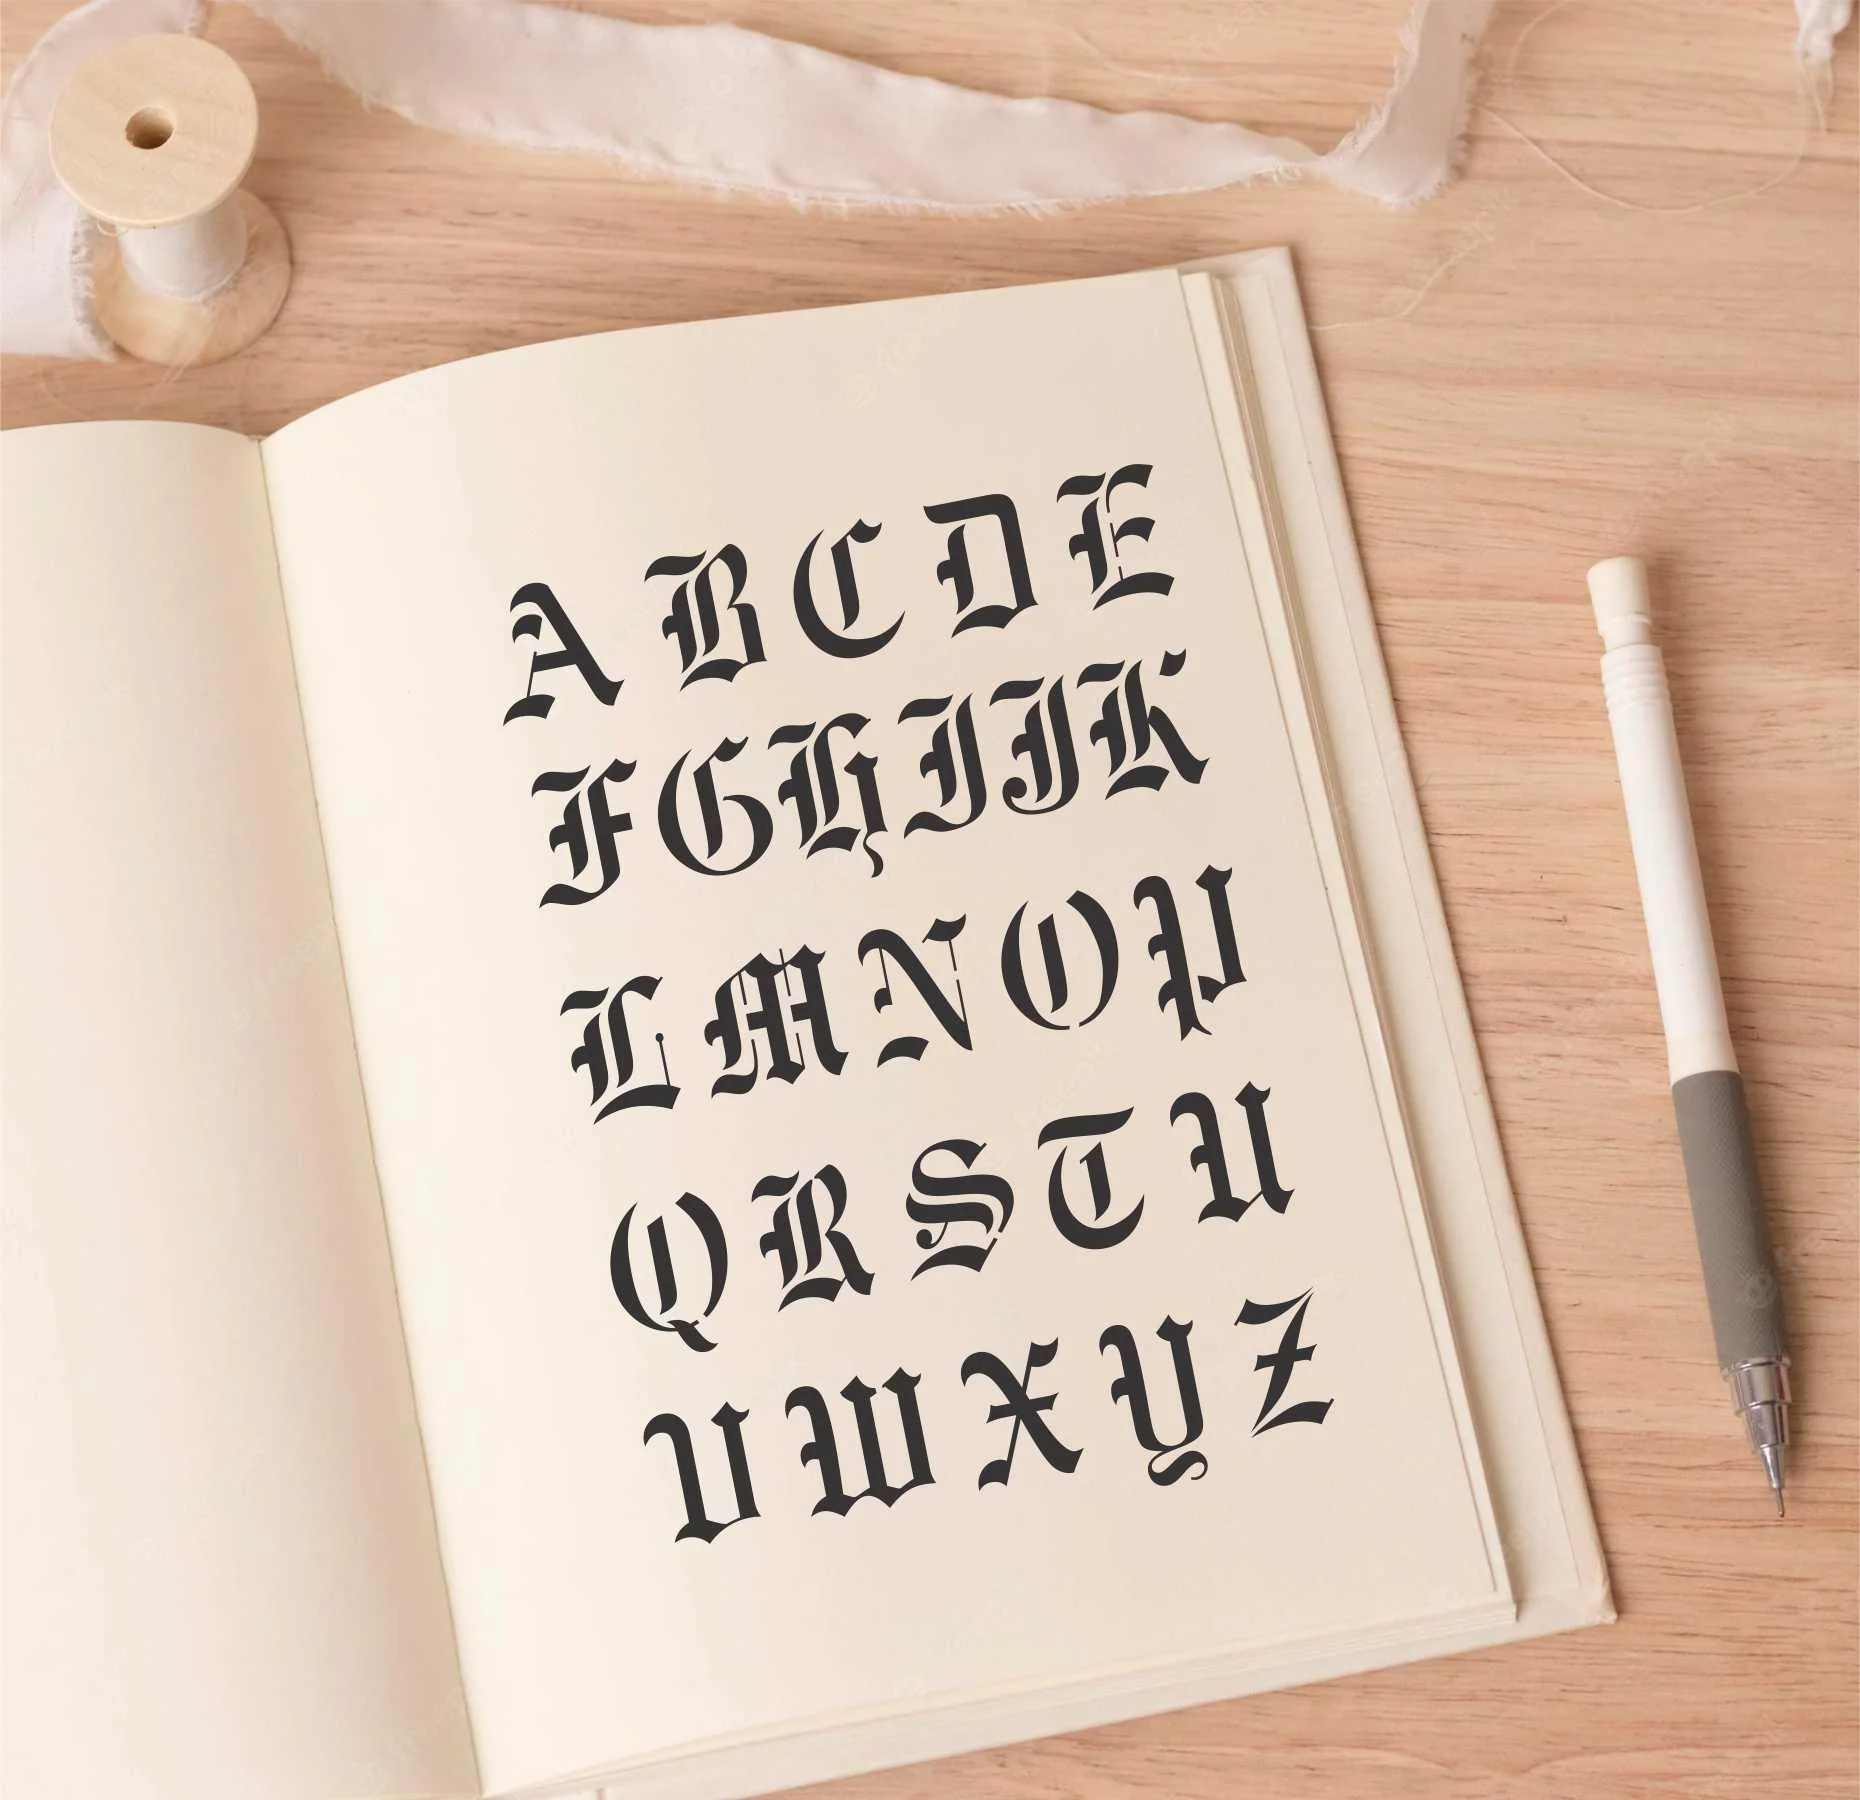 A B C D E
F G H I J K
L M N O P
Q R S T U
V W X Y Z